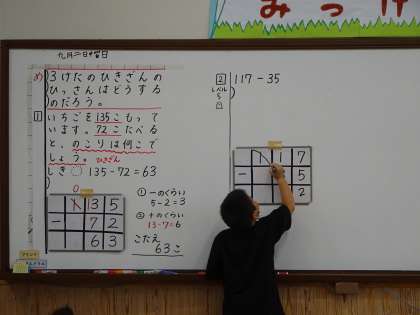 みっけ
九月二日中曜日
め 3けたのひきざんの
ひっさんはどうする
のだろう。
1 いちごを135こもって
います。72こたべる
と、のこりは何こで
しょう。ひきざん
しき 135-72=63
0
1 3 5
- 7 2
6 3
① 一のくらい
5-2=3
② 十のくらい
13-7=6
こたえ
63こ
2 117-35
レベル
5
1 1 7
- 5
2